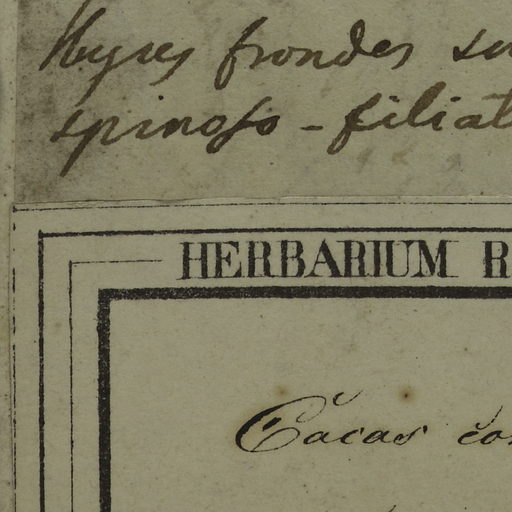 frondes
spinoso-filiat
HERBARIUM R
Cacas co